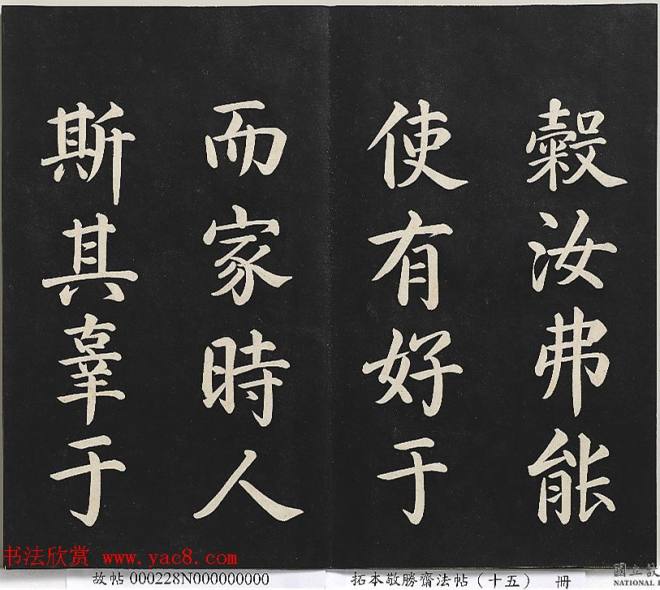 穀汝弗能
使有好于
而家時人
斯其辜于
书法欣赏 www.yac8.com
故帖 000228N000000000
拓本敬勝齋法帖（十五） 冊
國立
NATIONAL